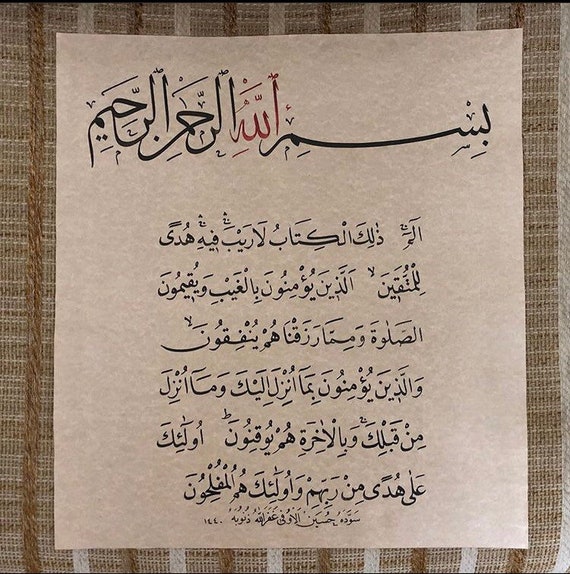 بِسْمِ اللَّهِ الرَّحْمٰنِ الرَّحِيمِ
الٓمٓ ۚ ذٰلِكَ الْكِتَابُ لَا رَيْبَ ۛ فِيهِ ۛ هُدًى
لِلْمُتَّقِينَ ۙ اَلَّذِينَ يُؤْمِنُونَ بِالْغَيْبِ وَيُقِيمُونَ
الصَّلٰوةَ وَمِمَّا رَزَقْنَاهُمْ يُنْفِقُونَ ۙ
وَالَّذِينَ يُؤْمِنُونَ بِمَا اُنْزِلَ اِلَيْكَ وَمَا اُنْزِلَ
مِنْ قَبْلِكَ ۚ وَبِالْاٰخِرَةِ هُمْ يُوقِنُونَ ۜ اُولٰئِكَ
عَلٰى هُدًى مِنْ رَبِّهِمْ وَاُولٰئِكَ هُمُ الْمُفْلِحُونَ
سَوَّدَهُ حُسَيْن الاوفى غَفَرَ اللّٰه ذُنُوبَهُ ١٤٤٠